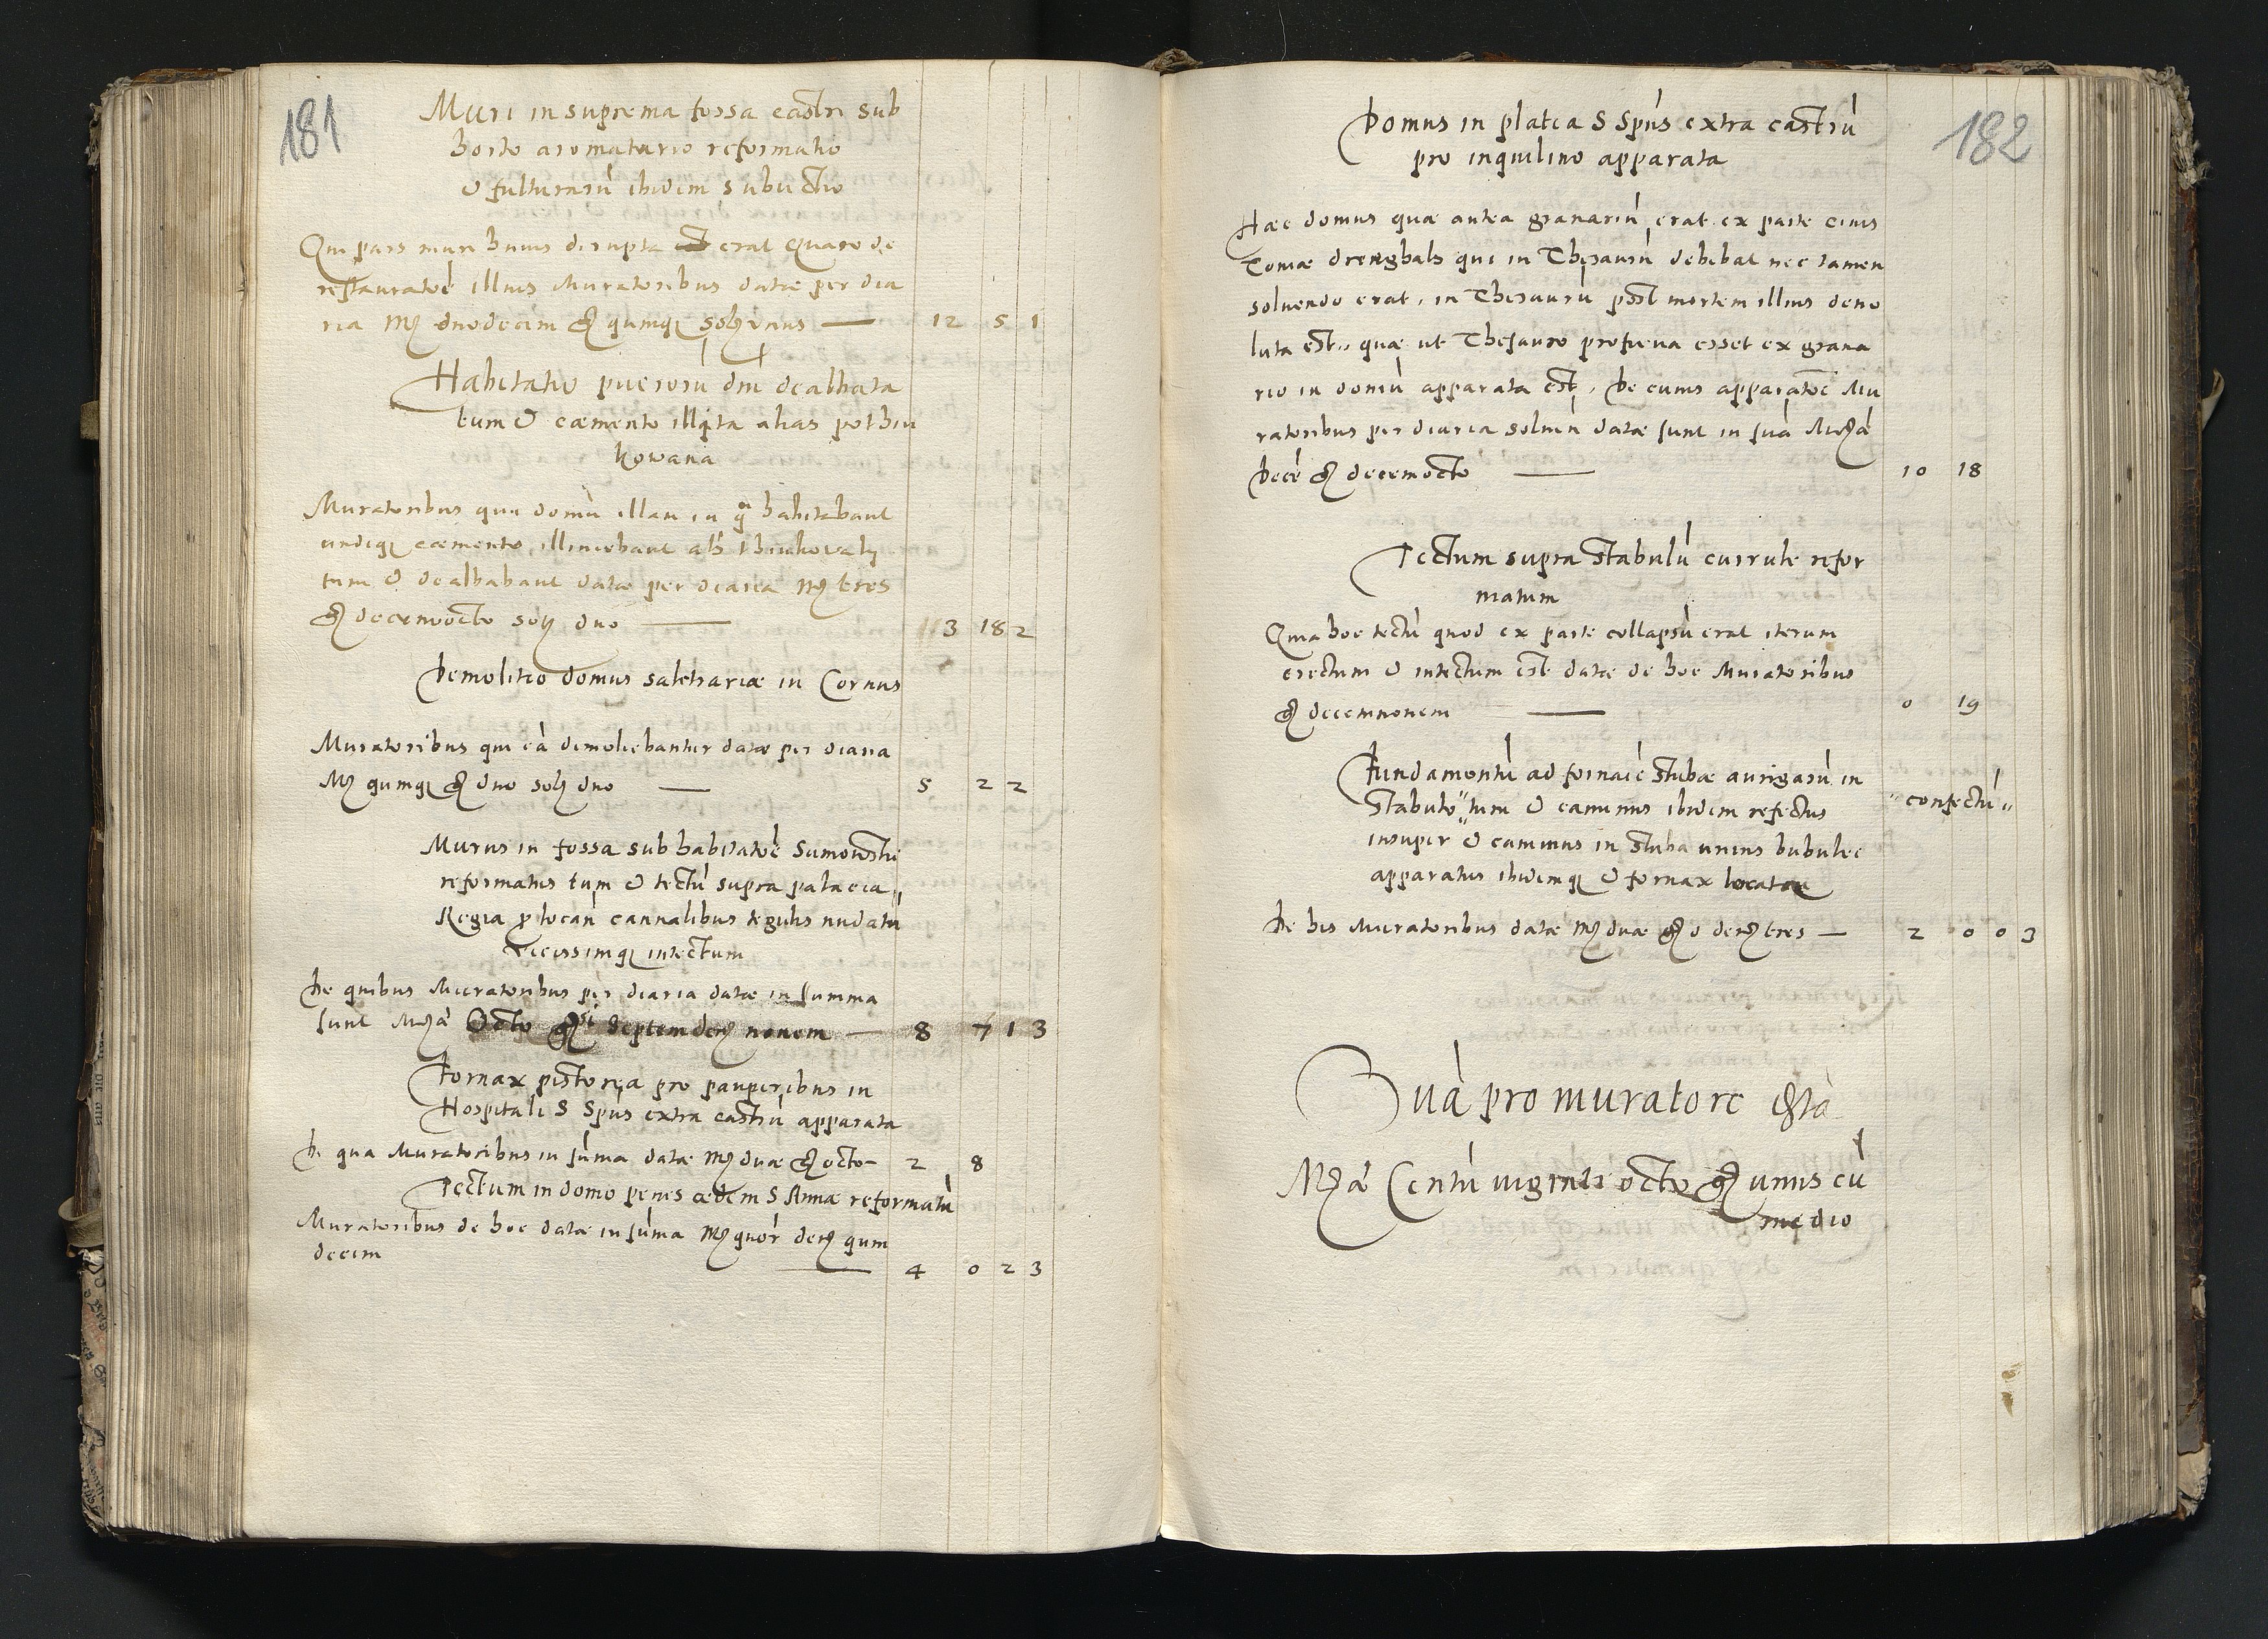 181
Muri in suprema fossa castri sub
horto aromatario reformatio
& fulturarū ibidem subuctio
Qui pars muri huius dirupta erat Quare de
restauratoē illius Muratoribus datae per dia
ria Mg duodecim gͦ quinqꝫ solꝫ unus — 12 5 1
Habitatio puerorū dni dealbata
tum & caemento illita alias pothin
kowana
Muratoribus qui domū illam in qͣ habitabant
undiqꝫ caemento illiniebant als
tum & dealbabant datae per diaria Mg tres
gͦ decemocto solꝫ duo — 3 18 2
Demolitio domus saletrariae in Cornus
Muratoribus qui eā demoliebantur datae per diaria
Mg quinqꝫ gͦ duo solꝫ duo — 5 2 2
Murus in fossa sub habitatoē
reformatus tum & tectū supra palacia
Regia ꝓ locan cannalibus tegulis nudatū
vicissimqꝫ intectum
De quibus Muratoribus per diaria datae in summa
sunt Mgͣ Octo gͦ septem denꝫ novem — 8 7 1 3
Fornax pistoria pro pauperibus in
Hospitali S Spūs extra castrū apparata
De qua Muratoribus in sūma datae Mg duae gͦ octo - 2 8
Tectum in domo penes aedem S Annae reformatū
Muratoribus de hoc datae in sūma Mg quor denꝫ quin
decim — 4 0 2 3
182
Domus in platea S Spūs extra castrū
pro inquilino apparata
Haec domus quae antea granariū erat ex parte eius
Tomae drengbals qui in Thesaurū debebat nec tamen
solvendo erat, in Thesaurū post mortem illius devo
luta est, quae ut Thesauro proficua esset ex grana
rio in domū apparata est, De cuius apparatoē Mu
ratoribus per diaria solum datae sunt in suā Mgͣ
Decē gͦ decemocto — 10 18
Tectum supra stabulū currule refor
matum
Quia hoc tectū quod ex parte collapsū erat iterum
erectum & intectum est datae de hoc Muratoribus
gͦ decemnovem — 0 19
Fundamentū ad fornacē stubae aurigarū in
stabulo "tum & caminus ibidem refectus "confectū"
insuper & caminus in stuba unius bubulce
apparatus ibidemqꝫ & fornax locata
De his Muratoribus datae Mg duae gͦ 0 denꝫ tres — 2 0 0 3
Suā pro muratore
Mgͣ Centū viginti octo gͦ unus cū
medio